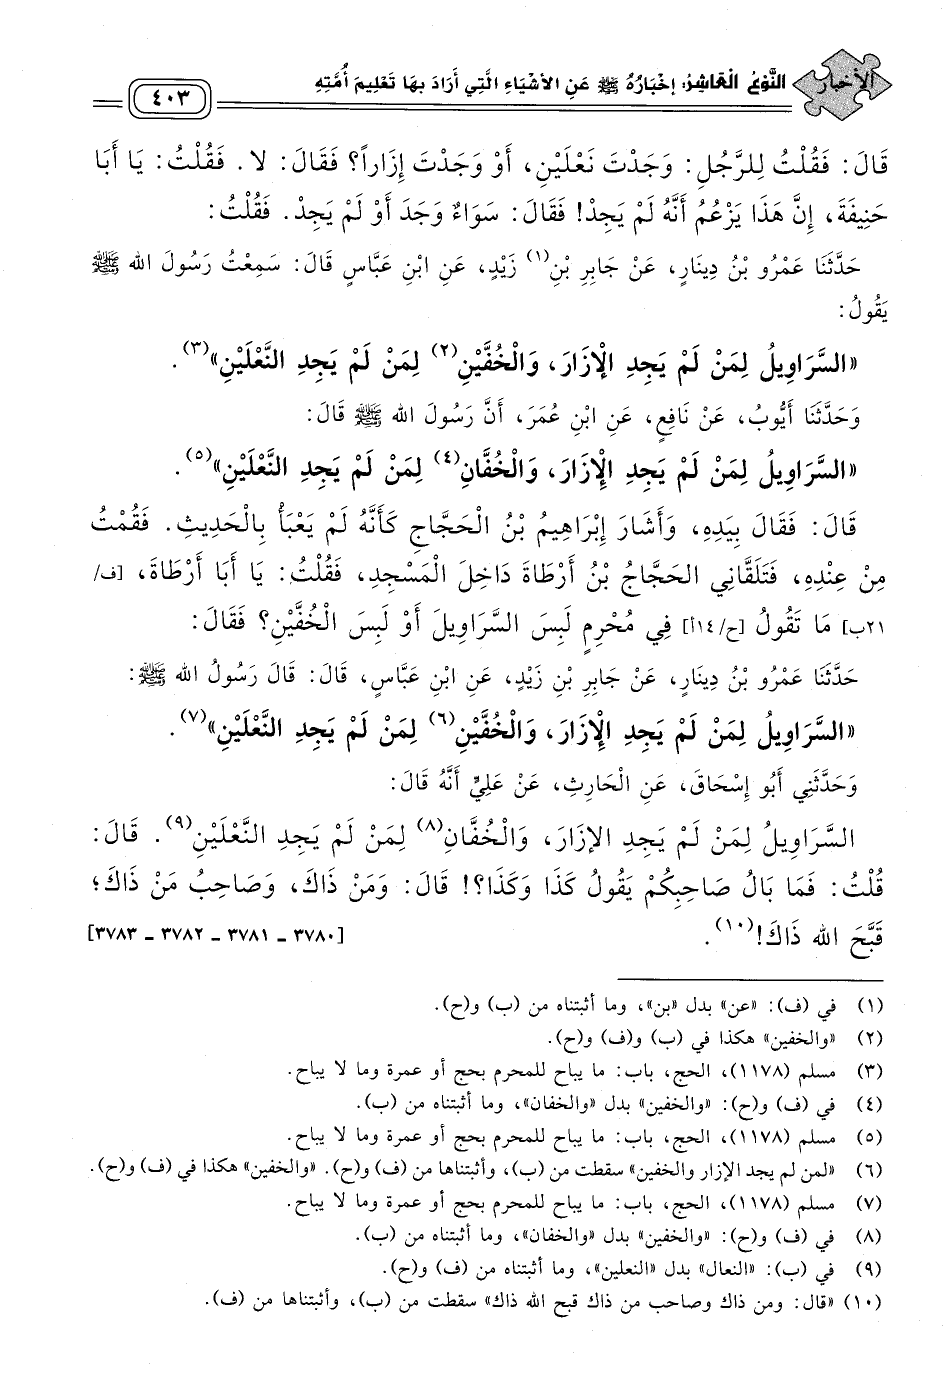 الأخبار
النَّوْعُ الْعَاشِرُ: إِخْبَارُهُ ﷺ عَنِ الأَشْيَاءِ الَّتِي أَرَادَ بِهَا تَعْلِيمَ أُمَّتِهِ
٤٠٣
قَالَ: فَقُلْتُ لِلرَّجُلِ: وَجَدْتَ نَعْلَيْنِ، أَوْ وَجَدْتَ إِزَاراً؟ فَقَالَ: لا. فَقُلْتُ: يَا أَبَا
حَنِيفَةَ، إِنَّ هَذَا يَزْعُمُ أَنَّهُ لَمْ يَجِدْ! فَقَالَ: سَوَاءٌ وَجَدَ أَوْ لَمْ يَجِدْ. فَقُلْتُ:
حَدَّثَنَا عَمْرُو بْنُ دِينَارٍ، عَنْ جَابِرِ بْنِ(١) زَيْدٍ، عَنِ ابْنِ عَبَّاسٍ قَالَ: سَمِعْتُ رَسُولَ الله ﷺ
يَقُولُ:
«السَّرَاوِيلُ لِمَنْ لَمْ يَجِدِ الإِزَارَ، وَالْخُفَّيْنِ(٢) لِمَنْ لَمْ يَجِدِ النَّعْلَيْنِ»(٣).
وَحَدَّثَنَا أَيُّوبُ، عَنْ نَافِعٍ، عَنِ ابْنِ عُمَرَ، أَنَّ رَسُولَ الله ﷺ قَالَ:
«السَّرَاوِيلُ لِمَنْ لَمْ يَجِدِ الْإِزَارَ، وَالْخُفَّانِ(٤) لِمَنْ لَمْ يَجِدِ النَّعْلَيْنِ»(٥).
قَالَ: فَقَالَ بِيَدِهِ، وَأَشَارَ إِبْرَاهِيمُ بْنُ الْحَجَّاجِ كَأَنَّهُ لَمْ يَعْبَأْ بِالْحَدِيثِ. فَقُمْتُ
مِنْ عِنْدِهِ، فَتَلَقَّانِي الحَجَّاجُ بْنُ أَرْطَاةَ دَاخِلَ الْمَسْجِدِ، فَقُلْتُ: يَا أَبَا أَرْطَاةَ، [ف/
٢١ب] مَا تَقُولُ [ح/١٤أ] فِي مُحْرِمٍ لَبِسَ السَّرَاوِيلَ أَوْ لَبِسَ الْخُفَّيْنِ؟ فَقَالَ:
حَدَّثَنَا عَمْرُو بْنُ دِينَارٍ، عَنْ جَابِرِ بْنِ زَيْدٍ، عَنِ ابْنِ عَبَّاسٍ، قَالَ: قَالَ رَسُولُ الله ﷺ:
«السَّرَاوِيلُ لِمَنْ لَمْ يَجِدِ الْإِزَارَ، وَالْخُفَّيْنِ(٦) لِمَنْ لَمْ يَجِدِ النَّعْلَيْنِ»(٧).
وَحَدَّثَنِي أَبُو إِسْحَاقَ، عَنِ الْحَارِثِ، عَنْ عَلِيٍّ أَنَّهُ قَالَ:
السَّرَاوِيلُ لِمَنْ لَمْ يَجِدِ الإِزَارَ، وَالْخُفَّانِ(٨) لِمَنْ لَمْ يَجِدِ النَّعْلَيْنِ(٩). قَالَ:
قُلْتُ: فَمَا بَالُ صَاحِبِكُمْ يَقُولُ كَذَا وَكَذَا؟! قَالَ: وَمَنْ ذَاكَ، وَصَاحِبُ مَنْ ذَاكَ؛
قَبَّحَ الله ذَاكَ!(١٠). [٣٧٨٠ ـ ٣٧٨١ ـ ٣٧٨٢ ـ ٣٧٨٣]
(١) في (ف): «عن» بدل «بن»، وما أثبتناه من (ب) و(ح).
(٢) «والخفين» هكذا في (ب) و(ف) و(ح).
(٣) مسلم (١١٧٨)، الحج، باب: ما يباح للمحرم بحج أو عمرة وما لا يباح.
(٤) في (ف) و(ح): «والخفين» بدل «والخفان»، وما أثبتناه من (ب).
(٥) مسلم (١١٧٨)، الحج، باب: ما يباح للمحرم بحج أو عمرة وما لا يباح.
(٦) «لمن لم يجد الإزار والخفين» سقطت من (ب)، وأثبتناها من (ف) و(ح). «والخفين» هكذا في (ف) و(ح).
(٧) مسلم (١١٧٨)، الحج، باب: ما يباح للمحرم بحج أو عمرة وما لا يباح.
(٨) في (ف) و(ح): «والخفين» بدل «والخفان»، وما أثبتناه من (ب).
(٩) في (ب): «النعال» بدل «النعلين»، وما أثبتناه من (ف) و(ح).
(١٠) «قال: ومن ذاك وصاحب من ذاك قبح الله ذاك» سقطت من (ب)، وأثبتناها من (ف).